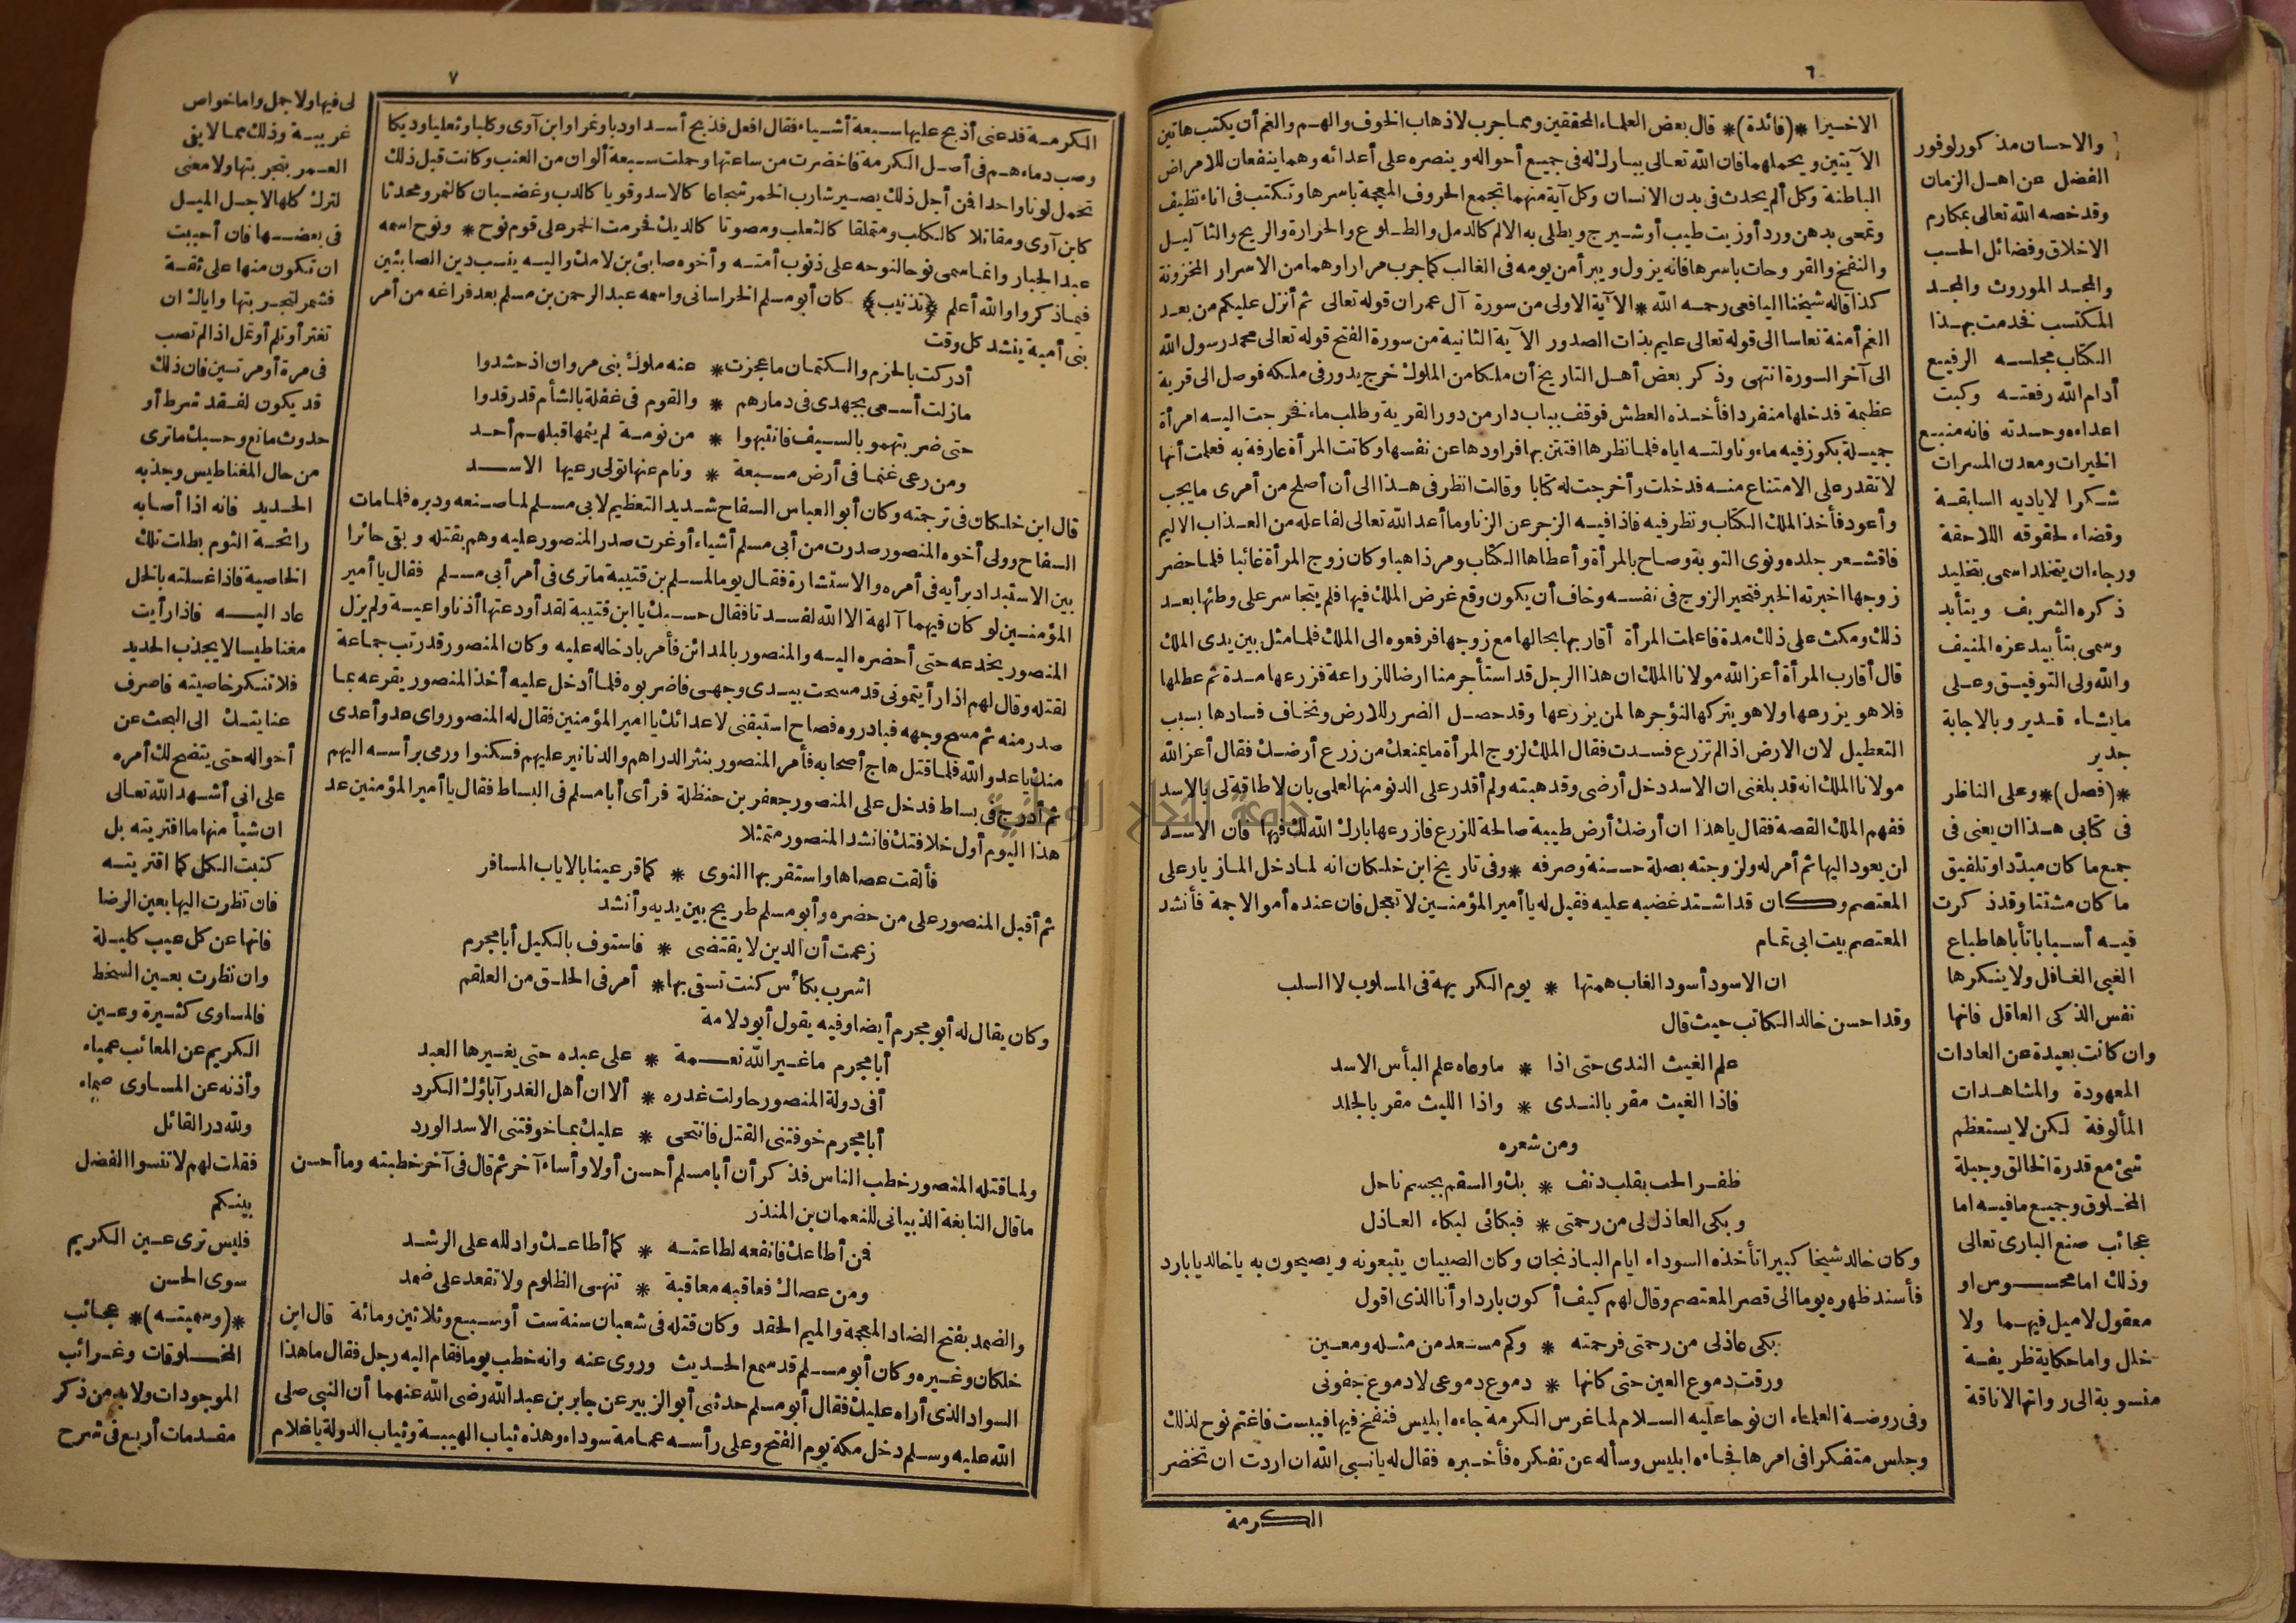 ٦
الاخيرا *(فائدة)* قال بعض العلماء المحققين ومما جرب لاذهاب الخوف والهم والغم أن يكتب هاتين
الآيتين ويحملهما فان الله تعالى يبارك له فى جميع أحواله وينصره على أعدائه وهما ينفعان للامراض
الباطنة وكل ألم يحدث فى بدن الانسان وكل آية منهما تجمع الحروف المعجمة باسرها وتكتب فى اناء نظيف
وتمحى بدهن ورد أو زيت طيب أو شيرج ويطلى به الالم كالدمل والطلوع والحرارة والريح والثآليل
والنفخ والقروحات باسرها فانه يزول ويبرأ من يومه فى الغالب كما جرب مرارا وهما من الاسرار المخزونة
كذا قاله شيخنا اليافعى رحمه الله * الآية الاولى من سورة آل عمران قوله تعالى ثم أنزل عليكم من بعد
الغم أمنة نعاسا الى قوله تعالى عليم بذات الصدور الآية الثانية من سورة الفتح قوله تعالى محمد رسول الله
الى آخر السورة انتهى وذكر بعض أهل التاريخ أن ملكا من الملوك خرج يدور فى ملكه فوصل الى قرية
عظيمة فدخلها منفردا فأخذه العطش فوقف بباب دار من دور القرية وطلب ماء فخرجت اليه امرأة
جميلة بكوز فيه ماء وناولته اياه فلما نظرها افتتن بها فراودها عن نفسها وكانت المرأة عارفة به فعلمت أنها
لا تقدر على الامتناع منه فدخلت وأخرجت له كتابا وقالت انظر فى هذا الى أن أصلح من أمرى ما يجب
وأعود فأخذ الملك الكتاب ونظر فيه فاذا فيه الزجر عن الزنا وما أعد الله تعالى لفاعله من العذاب الاليم
فاقشعر جلده ونوى التوبة وصاح بالمرأة وأعطاها الكتاب ومر ذاهبا وكان زوج المرأة غائبا فلما حضر
زوجها اخبرته الخبر فتحير الزوج فى نفسه وخاف أن يكون وقع غرض الملك فيها فلم يتجاسر على وطئها بعد
ذلك ومكث على ذلك مدة فاعلمت المرأة أقاربها بحالها مع زوجها فرفعوه الى الملك فلما مثل بين يدى الملك
قال أقارب المرأة أعز الله مولانا الملك ان هذا الرجل قد استأجر منا ارضا للزراعة فزرعها مدة ثم عطلها
فلا هو يزرعها ولا هو يتركها لنؤجرها لمن يزرعها وقد حصل الضرر للارض ونخاف فسادها بسبب
التعطيل لان الارض اذا لم تزرع فسدت فقال الملك لزوج المرأة ما يمنعك من زرع أرضك فقال أعز الله
مولانا الملك انه قد بلغنى ان الاسد دخل أرضى وقد هبته ولم أقدر على الدنو منها لعلمى بان لا طاقة لى بالاسد
ففهم الملك القصة فقال يا هذا ان أرضك أرض طيبة صالحة للزرع فازرعها بارك الله لك فيها فان الاسد
لن يعود اليها ثم أمر له ولزوجته بصلة حسنة وصرفه * وفى تاريخ ابن خلكان انه لما دخل المازيار على
المعتصم وكان قد اشتد غضبه عليه فقيل له يا أمير المؤمنين لا تعجل فان عنده أموالا جمة فأنشد
المعتصم بيت ابى تمام
ان الاسود أسود الغاب همتها * يوم الكريهة فى المسلوب لا السلب
وقد احسن خالد الكاتب حيث قال
علم الغيث الندى حتى اذا * ما وعاه علم البأس الاسد
فاذا الغيث مقر بالندى * واذا الليث مقر بالجلد
ومن شعره
ظفر الحب بقلب دنف * بك والسقم بجسم ناحل
وبكى العاذل لى من رحمتى * فبكائى لبكاء العاذل
وكان خالد شيخا كبيرا تأخذه السوداء ايام الباذنجان وكان الصبيان يتبعونه ويصيحون به يا خالد يا بارد
فأسند ظهره يوما الى قصر المعتصم وقال لهم كيف أكون باردا وأنا الذى اقول
بكى عاذلى من رحمتى فرحمته * وكم مسعد من مثله ومعين
ورقت دموع العين حتى كانها * دموع دموعى لا دموع جفونى
وفى روضة العلماء ان نوحا عليه السلام لما غرس الكرمة جاءه ابليس فنفخ فيها فيبست فاغتم نوح لذلك
وجلس متفكرا فى امرها فجاءه ابليس وسأله عن تفكره فأخبره فقال له يا نبى الله ان اردت ان تخضر
الكرمة
والاحسان مذكور لوفور
الفضل عن اهل الزمان
وقد خصه الله تعالى بمكارم
الاخلاق وفضائل الحسب
والمجد الموروث والمجد
المكتسب فخدمت بهذا
الكتاب مجلسه الرفيع
أدام الله رفعته وكبت
اعداءه وحسدته فانه منبع
الخيرات ومعدن المسرات
شكرا لاياديه السابقة
وقضاء لحقوقه اللاحقة
ورجاء ان يتخلد اسمى بتخليد
ذكره الشريف ويتأبد
وسمى بتأبيد عزه المنيف
والله ولى التوفيق وعلى
ما يشاء قدير وبالاجابة
جدير
*(فصل)* وعلى الناظر
فى كتابى هذا ان يعنى فى
جمع ما كان مبددا وتلفيق
ما كان مشتتا وقد ذكرت
فيه أسبابا تأباها طباع
الغبى الغافل ولا ينكرها
نفس الذكى العاقل فانها
وان كانت بعيدة عن العادات
المعهودة والمشاهدات
المألوفة لكن لا يستعظم
شئ مع قدرة الخالق وجبلة
المخلوق وجميع ما فيه اما
عجائب صنع البارى تعالى
وذلك اما محسوس او
معقول لا ميل فيهما ولا
خلل واما حكاية ظريفة
منسوبة الى رواتها لا ناقة
٧
الكرمة فدعنى أذبح عليها سبعة أشياء فقال افعل فذبح أسدا ودبا ونمرا وابن آوى وكلبا وثعلبا وديكا
وصب دماءهم فى أصل الكرمة فاخضرت من ساعتها وحملت سبعة ألوان من العنب وكانت قبل ذلك
تحمل لونا واحدا فمن أجل ذلك يصير شارب الخمر شجاعا كالاسد وقويا كالدب وغضبان كالنمر ومحدثا
كابن آوى ومقاتلا كالكلب ومتملقا كالثعلب ومصوتا كالديك فحرمت الخمر على قوم نوح * ونوح اسمه
عبد الجبار وانما سمى نوحا لنوحه على ذنوب أمته وأخوه صابئ بن لامك واليه ينسب دين الصابئين
فيما ذكروا والله أعلم ﴿تذنيب﴾ كان أبو مسلم الخراسانى واسمه عبد الرحمن بن مسلم بعد فراغه من أمر
بنى أمية ينشد كل وقت
أدركت بالحزم والكتمان ما عجزت * عنه ملوك بنى مروان اذ حشدوا
ما زلت أسعى بجهدى فى دمارهم * والقوم فى غفلة بالشأم قد رقدوا
حتى ضربتهمو بالسيف فانتبهوا * من نومة لم ينمها قبلهم أحد
ومن رعى غنما فى أرض مسبعة * ونام عنها تولى رعيها الاسد
قال ابن خلكان فى ترجمته وكان أبو العباس السفاح شديد التعظيم لابى مسلم لما صنعه ودبره فلما مات
السفاح وولى أخوه المنصور صدرت من أبى مسلم أشياء أوغرت صدر المنصور عليه وهم بقتله وبقى حائرا
بين الاستبداد برأيه فى أمره والاستشارة فقال يوما لمسلم بن قتيبة ما ترى فى أمر أبى مسلم فقال يا أمير
المؤمنين لو كان فيهما آلهة الا الله لفسدتا فقال حسبك يا ابن قتيبة لقد أودعتها أذنا واعية ولم يزل
المنصور يخدعه حتى أحضره اليه والمنصور بالمدائن فأمر بادخاله عليه وكان المنصور قد رتب جماعة
لقتله وقال لهم اذا رأيتمونى قد مسحت بيدى وجهى فاضربوه فلما أدخل عليه أخذ المنصور يقرعه بما
صدر منه ثم مسح وجهه فبادروه فصاح استبقنى لاعدائك يا امير المؤمنين فقال له المنصور واى عدو أعدى
منك يا عدو الله فلما قتل هاج أصحابه فأمر المنصور بنثر الدراهم والدنانير عليهم فسكنوا ورمى برأسه اليهم
ثم أدرج فى بساط فدخل على المنصور جعفر بن حنظلة فرأى أبا مسلم فى البساط فقال يا أمير المؤمنين عد
هذا اليوم أول خلافتك فانشد المنصور متمثلا
فألقت عصاها واستقر بها النوى * كما قر عينا بالاياب المسافر
ثم أقبل المنصور على من حضره وأبو مسلم طريح بين يديه وأنشد
زعمت أن الدين لا يقتضى * فاستوف بالكيل أبا مجرم
اشرب بكأس كنت تسقى بها * أمر فى الحلق من العلقم
وكان يقال له أبو مجرم أيضا وفيه يقول أبو دلامة
أبا مجرم ما غير الله نعمة * على عبده حتى يغيرها العبد
أفى دولة المنصور حاولت غدره * ألا ان أهل الغدر آباؤك الكرد
أبا مجرم خوفتنى القتل فانتحى * عليك بما خوفتنى الاسد الورد
ولما قتله المنصور خطب الناس فذكر أن أبا مسلم أحسن أولا وأساء آخر ثم قال فى آخر خطبته وما أحسن
ما قال النابغة الذبيانى للنعمان بن المنذر
فمن أطاعك فانفعه لطاعته * كما أطاعك وادلله على الرشد
ومن عصاك فعاقبه معاقبة * تنهى الظلوم ولا تقعد على ضمد
والضمد بفتح الضاد المعجمة والميم الحقد وكان قتله فى شعبان سنة ست أو سبع وثلاثين ومائة قال ابن
خلكان وغيره وكان أبو مسلم قد سمع الحديث وروى عنه وانه خطب يوما فقام اليه رجل فقال ما هذا
السواد الذى أراه عليك فقال أبو مسلم حدثنى أبو الزبير عن جابر بن عبد الله رضى الله عنهما أن النبى صلى
الله عليه وسلم دخل مكة يوم الفتح وعلى رأسه عمامة سوداء وهذه ثياب الهيبة وثياب الدولة يا غلام
لى فيها ولا جمل واما خواص
غريبة وذلك مما لا يفى
العمر بتجربتها ولا معنى
لترك كلها لاجل الميل
فى بعضها فان أحببت
ان تكون منها على ثقة
فشمر لتجربتها واياك ان
تغتر أو تلم أو تمل اذا لم تصب
فى مرة أو مرتين فان ذلك
قد يكون لفقد شرط أو
حدوث مانع وحسبك ما ترى
من حال المغناطيس وجذبه
الحديد فانه اذا أصابه
رائحة الثوم بطلت تلك
الخاصية فاذا غسلته بالخل
عاد اليه فاذا رأيت
مغناطيسا لا يجذب الحديد
فلا تنكر خاصيته فاصرف
عنايتك الى البحث عن
أحواله حتى يتضح لك أمره
على انى أشهد الله تعالى
ان شيأ منها ما افتريته بل
كتبت الكل كما اقتريته
فان نظرت اليها بعين الرضا
فانها عن كل عيب كليلة
وان نظرت بعين السخط
فالمساوى كثيرة وعين
الكريم عن المعائب عمياء
وأذنه عن المساوى صماء
ولله در القائل
فقلت لهم لا تنسوا الفضل
بينكم
فليس ترى عين الكريم
سوى الحسن
*(وسميته)* عجائب
المخلوقات وغرائب
الموجودات ولا بد من ذكر
مقدمات أربع فى شرح
جامعة النجاح الوطنية